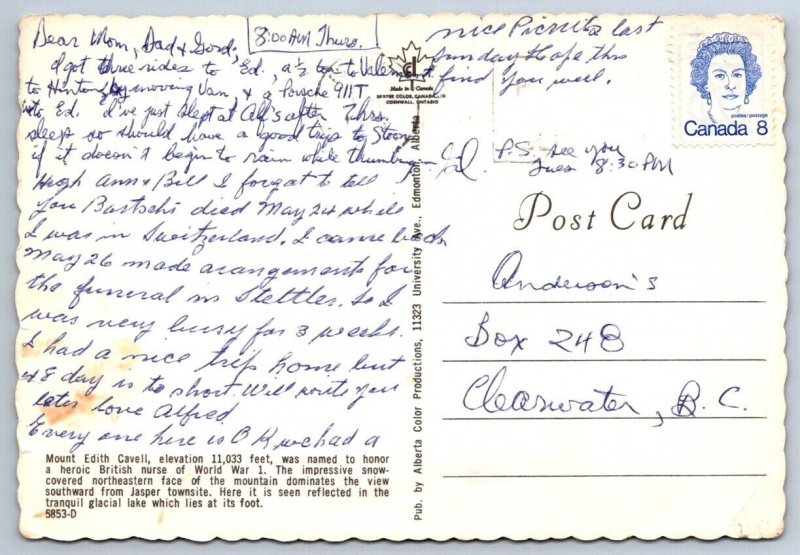 8:00 AM Thurs.
Dear Mom, Dad & Gord,
I got three rides to Ed, a ½ ton to Valemont
to Hinton by moving Van, & a Porsche 911T
into Ed. I've just slept at Alf's after 7 hrs.
sleep so should have a good trip to Stoon
if it doesn't begin to rain while thumbing.
Hugh Ann & Bill I forgot to tell
you Bartschi died May 24 while
I was in Switzerland. I came back
May 26 made arangements for
the funeral in Stettler. So I
was very busy for 3 weeks.
I had a nice trip home but
48 day is to short. Will write you
later love Alfred.
Every one here is OK we had a
nice Picnic last
sunday Hope this
find you well.
P.S. see you
Tues 8:30 PM
Made in Canada
CORNWALL, ONTARIO
postes/postage
Canada 8
Post Card
Anderson's
Box 248
Clearwater, B.C.
Pub. by Alberta Color Productions, 11323 University Ave., Edmonton, Alberta
Mount Edith Cavell, elevation 11,033 feet, was named to honor
a heroic British nurse of World War 1. The impressive snow-
covered northeastern face of the mountain dominates the view
southward from Jasper townsite. Here it is seen reflected in the
tranquil glacial lake which lies at its foot.
5853-D